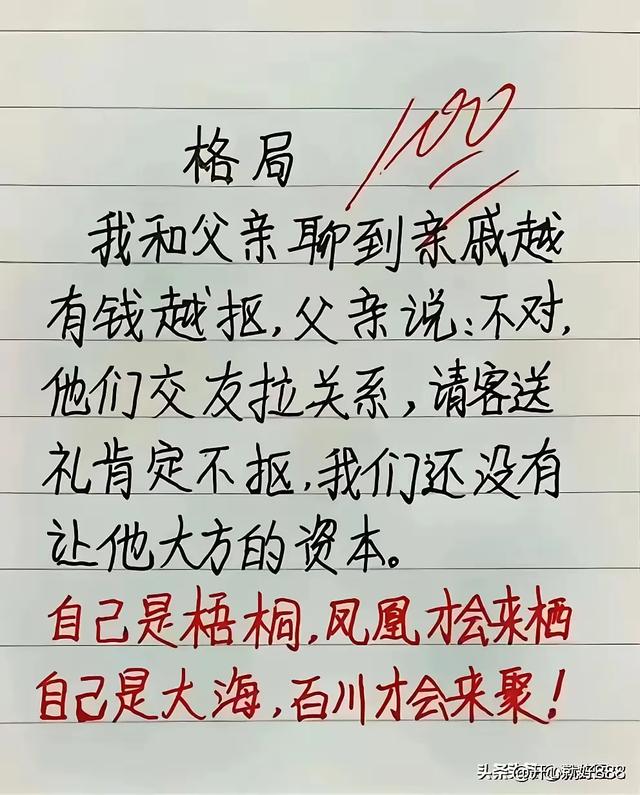 格局
100
我和父亲聊到亲戚越
有钱越抠,父亲说:不对,
他们交友拉关系,请客送
礼肯定不抠,我们还没有
让他大方的资本。
自己是梧桐,凤凰才会来栖
自己是大海,百川才会来聚!
头条 @开心就好888